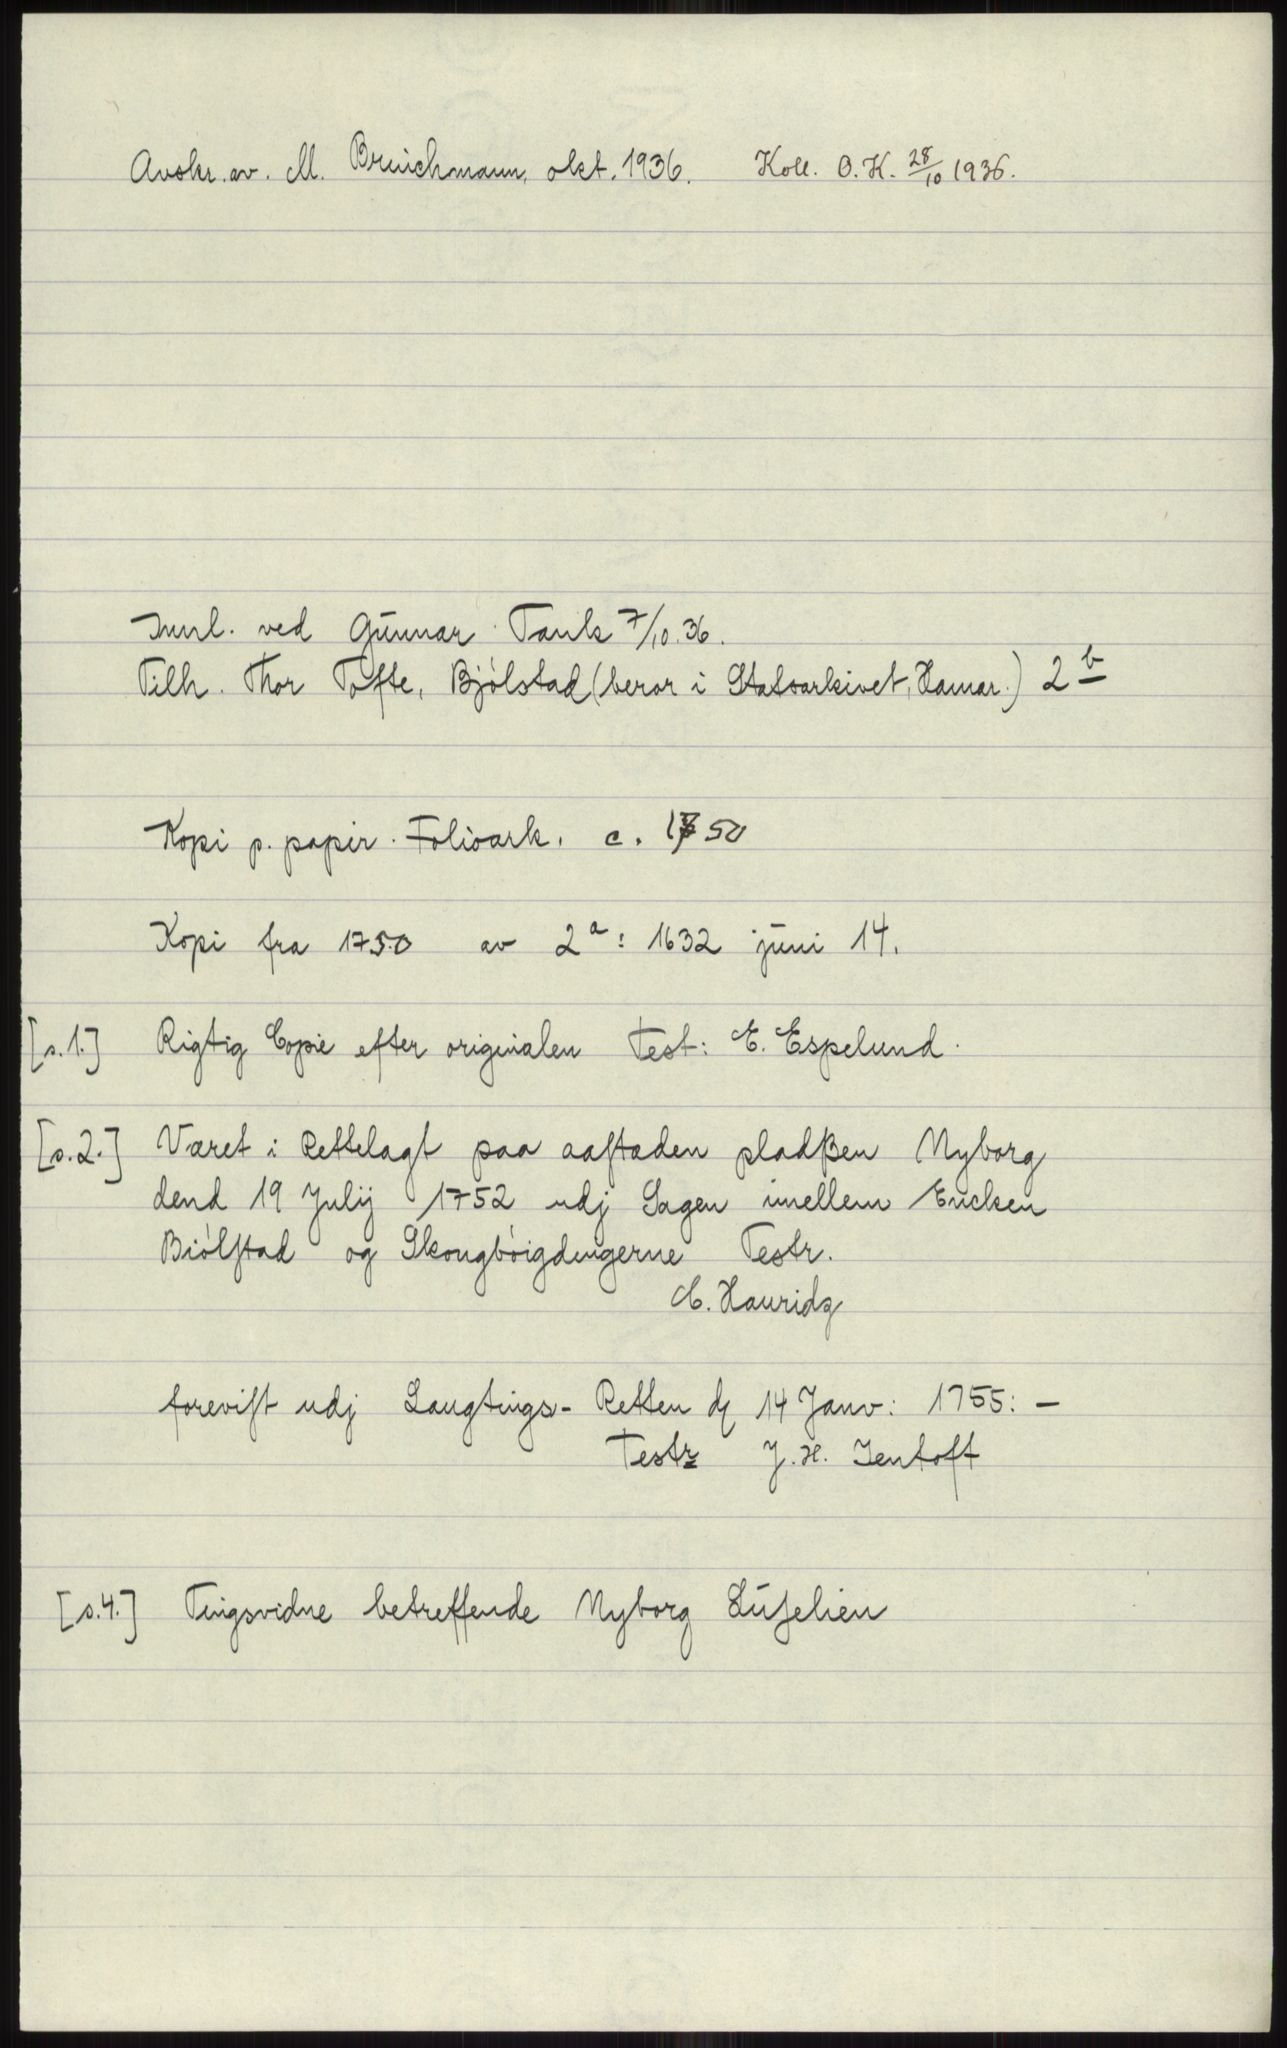 Avskr. av. M. Bruichmann, okt. 1936. Koll. O. K. 28/10 1936.
Innl. ved Gunnar Tank 7/10.36.
Tilh. Thor Tofte, Bjölstad (beror i Statsarkivet, Hamar.) 2 b
Kopi p. papir. Folioark. c. 1750
Kopi fra 1750 av 2 a: 1632 juni 14.
[s.1.] Rigtig Copie efter originalen Test: E. Espelund.
[s.2.] Været i Rettelagt paa aaſtaden pladẞen Nyborg
dend 19 Julij 1752 udj Sagen imellem Encken
Biölſtad og Skougböigdengerne Testr.
Hauridz
foreviſt udj Laugtings- Retten d 14 Janv: 1755: —
Testr J. H. Jentoft
[s.4.] Tingsvidne betreffende Nyborg